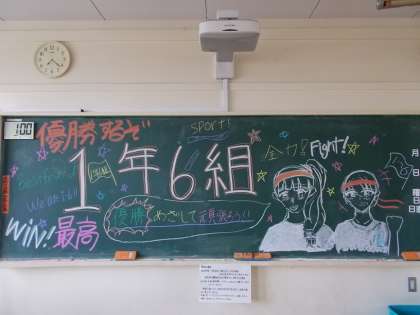 100
優勝するぞ
sport!
全力!
Fight!
1年6組
月
日
曜日
日直
優勝めざして頑張ろう!!
WIN!
最高